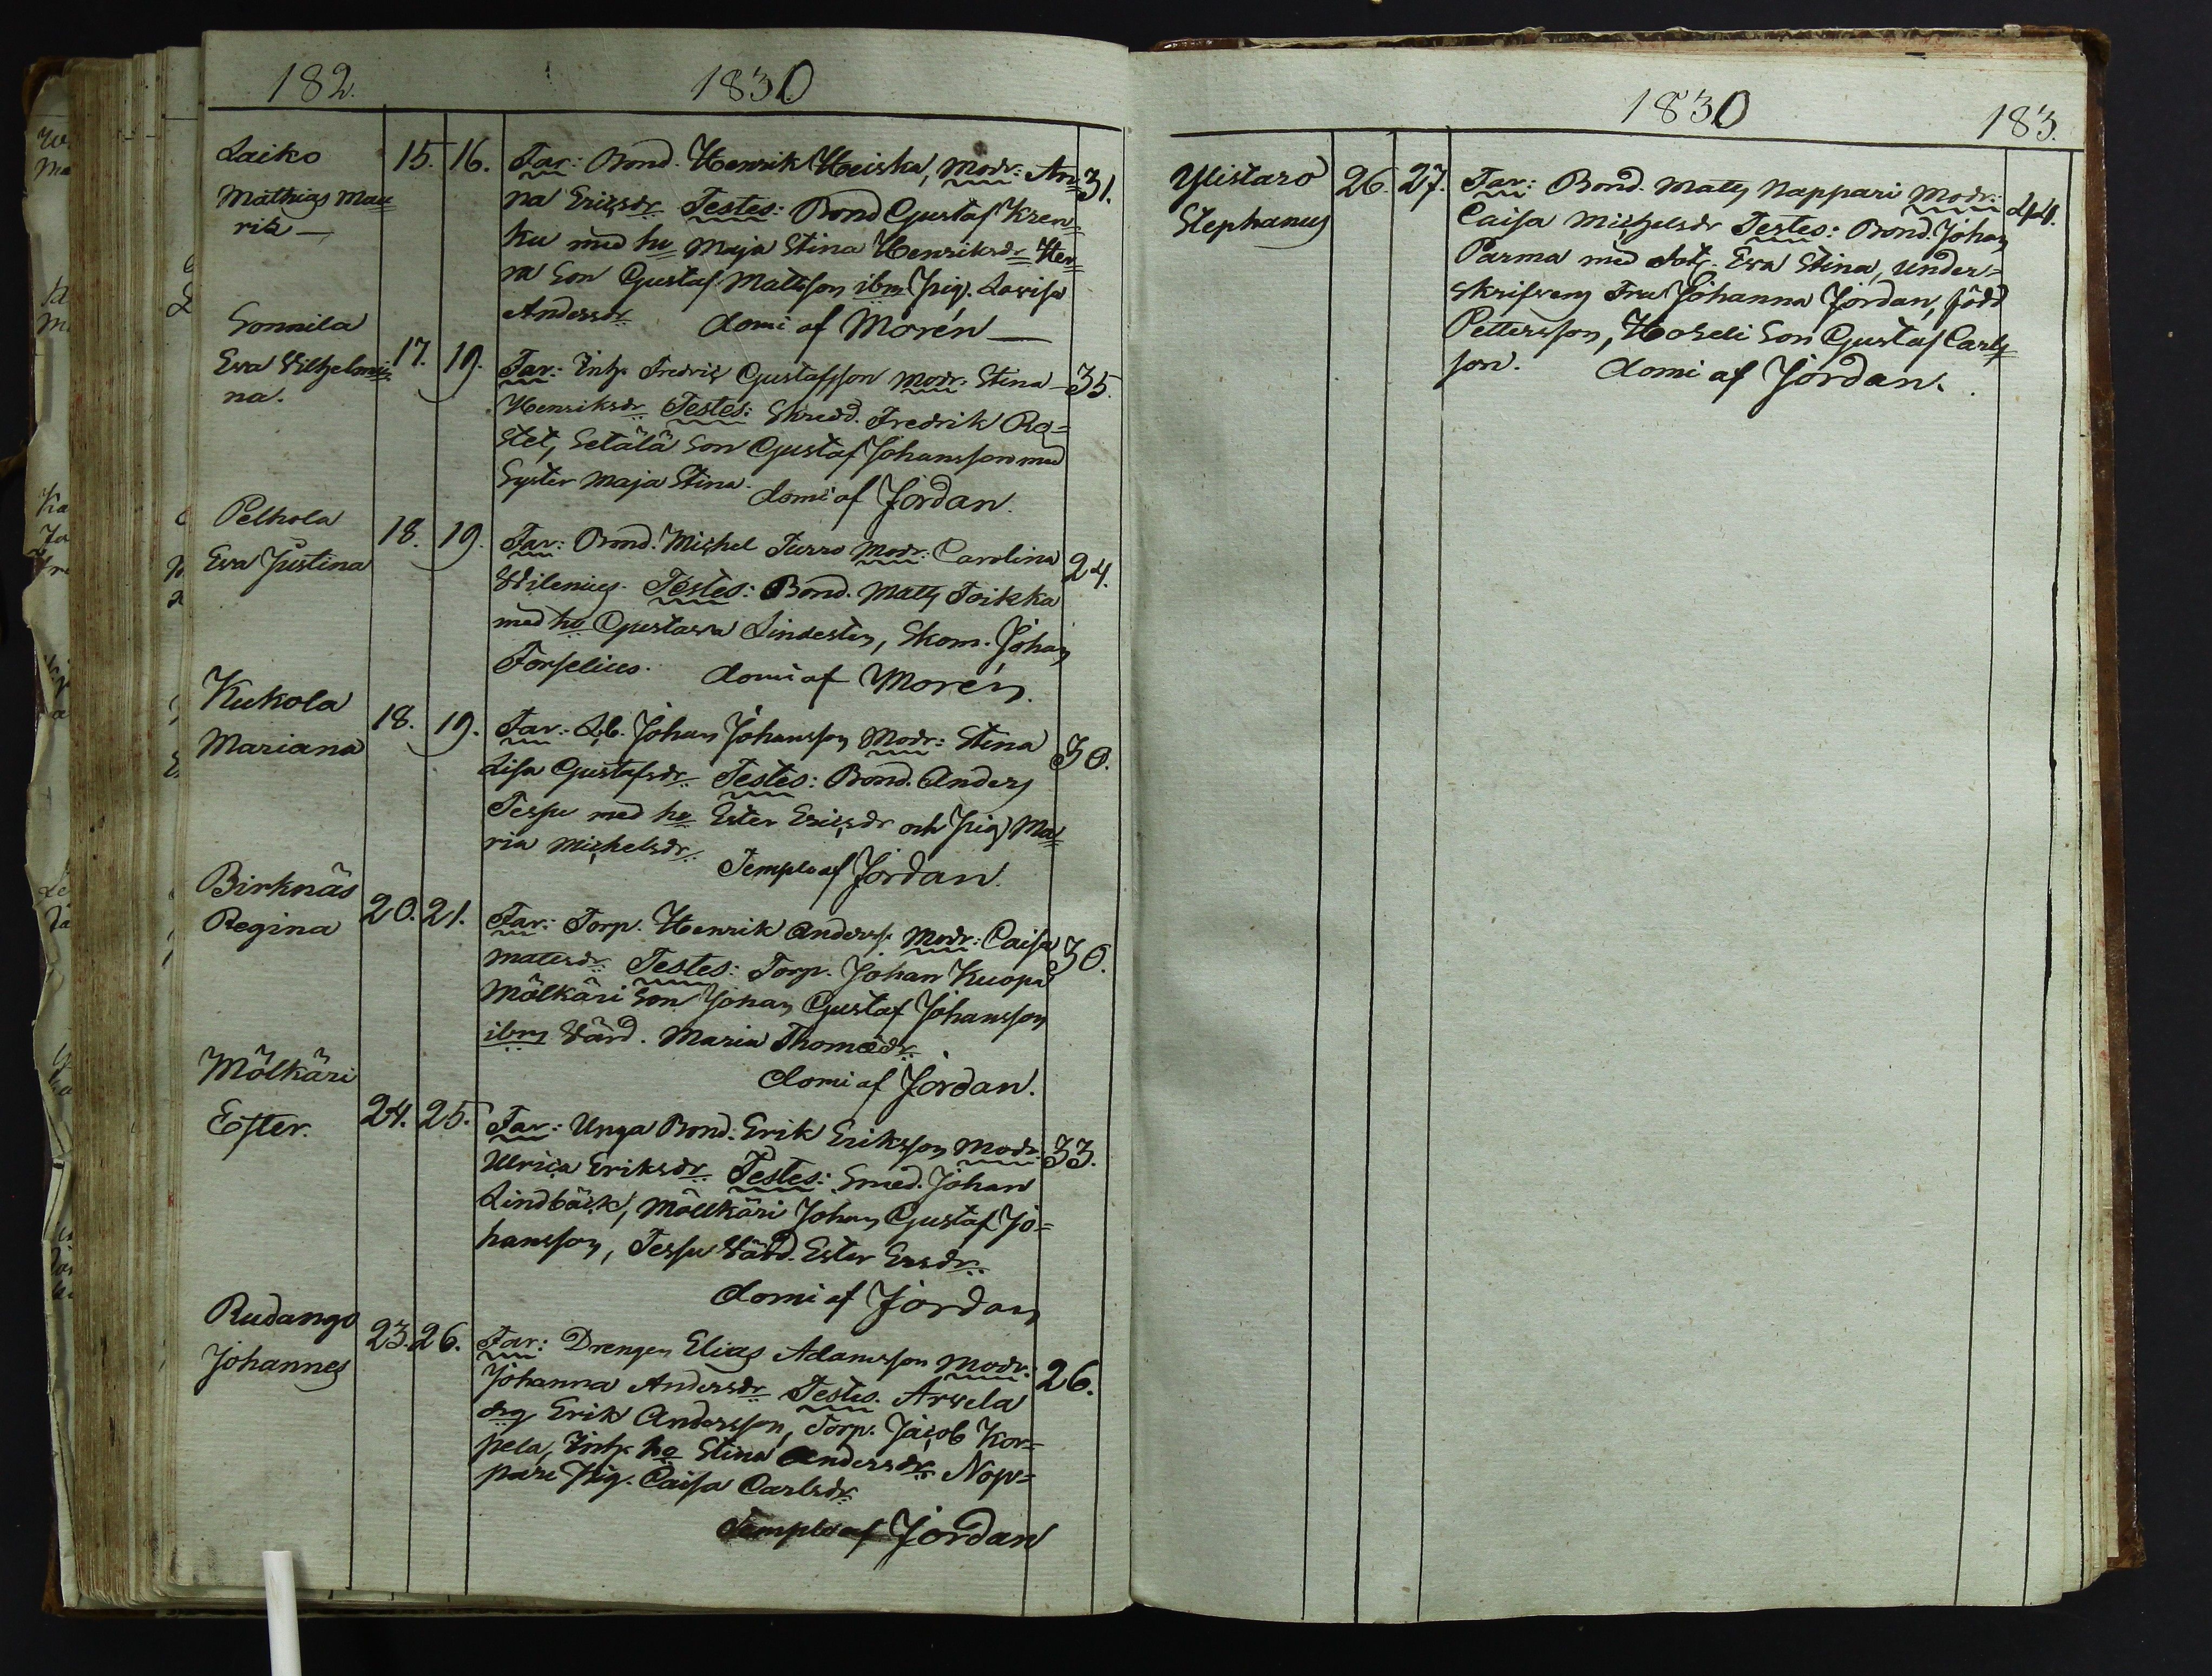 182.
1830
Laiko
Mathias Mau
rits
15. 16.
Far: Bond. Henrik Heiska, Modr: An= 31.
na Ericsdr Testes: Bond Gustaf Kren=
ku med hu Maja Stina Henriksdr Her=
ra Son Gustaf Mattsson ibm Pig. Lovisa
Andersdr domi af Morén
Sonnila
Ewa Wilhelmi=
na.
17. 19.
Far: Inh. Fredric Gustafsson Modr: Stina 35.
Henriksdr Testes: Skredd. Fredrik Ro=
stet, Setälä Son Gustaf Johansson med
Syster Maja Stina. domi af Jordan.
Pelkola
Ewa Justina
18. 19.
Far: Bond. Michel Turro Modr: Carolina 24.
Wilenius. Testes: Bond. Matts Toikka
med hu Gustava Lindesten, Skom. Johan
Forselius. domi af Morén.
Kukola
Mariana
18. 19.
Far: Johan Johansson Modr: Stina 30.
Lisa Gustafsdr Testes: Bond. Anders
Tessu med hu Ester Ericsdr och Pig Ma=
ria Michelsdr Templo af Jordan.
Birknäs
Regina
20. 21.
Far: Torp. Henrik Anderss. Modr: Caisa 30.
Matsdr Testes: Torp. Johan Kuopa
Mölkäri Son Johan Gustaf Johansson
ibm Värd. Maria Thomædr
domi af Jordan.
Mölkäri
Ester.
24. 25.
Far: Unga Bond. Erik Eriksson Modr: 33.
Ulrica Eriksdr Testes: Smed. Johan
Lindbäck, Mölkäri Johan Gustaf Jo=
hansson, Tessu Värd. Ester Ersdr
domi af Jordan
Rudango
Johannes
23. 26.
Far: Drengen Elias Adamsson Modr: 26.
Johanna Andersdr Testes. Arvela
drg Erik Andersson, Torp. Jacob Kor=
pela, Inh. hu Stina Andersdr Nop=
pari Pig. Caisa Carlsdr
Templo af Jordan
1830
183.
Ylistaro
Stephanus
26. 27.
Far: Bond. Matts Nappari Modr: 44.
Caisa Michelsdr Testes: Bond. Johan
Parma med dotr. Ewa Stina, under=
skrifvens Fru Johanna Jordan, född
Pettersson, Hoheli Son Gustaf Carls=
son. domi af Jordan.